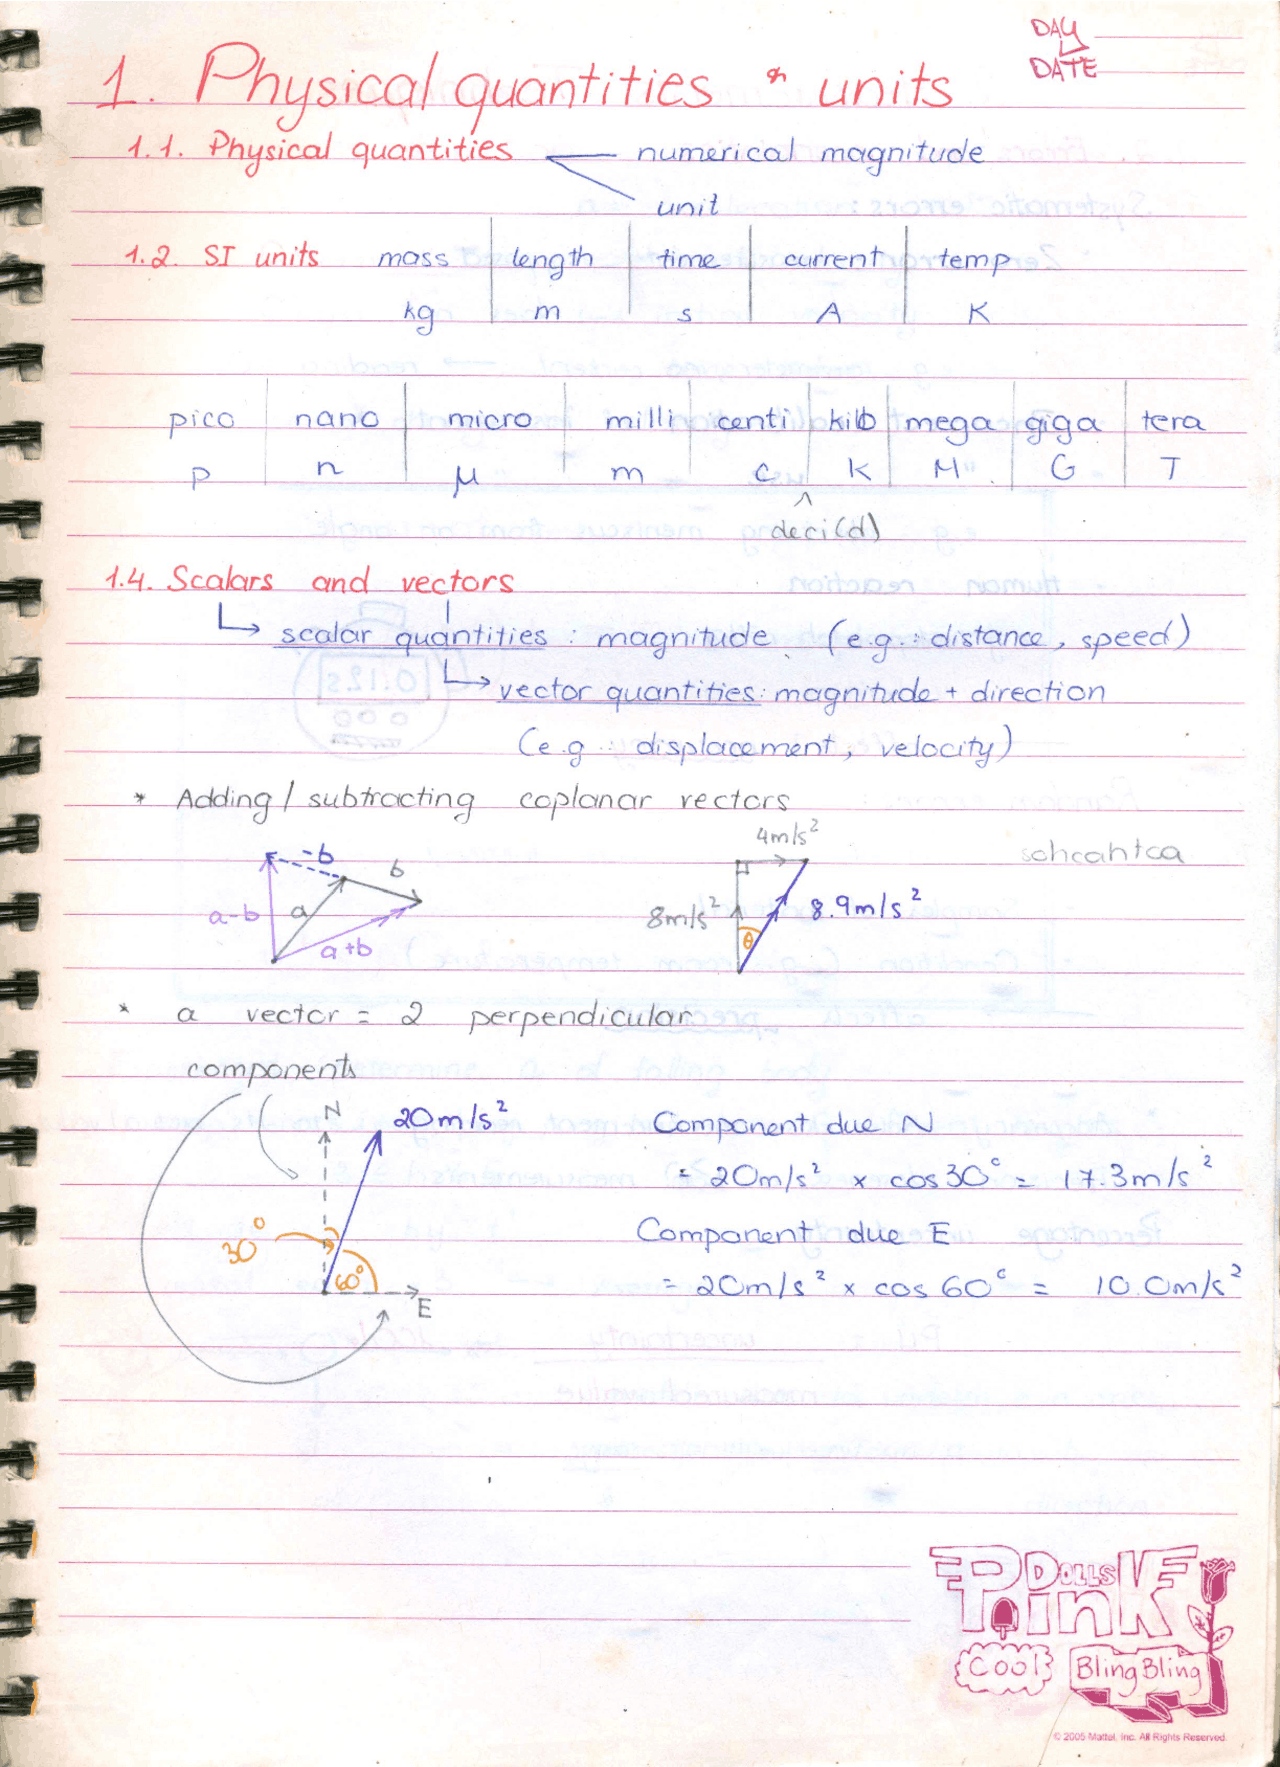 DAY
DATE
1. Physical quantities & units
1.1. Physical quantities numerical magnitude
unit
1.2. SI units mass length time current temp
kg m s A K
pico nano micro milli centi kilo mega giga tera
p n μ m c k M G T
deci(d)
1.4. Scalars and vectors
scalar quantities : magnitude (e.g.: distance, speed)
vector quantities: magnitude + direction
(e.g.: displacement, velocity)
* Adding / subtracting coplanar vectors
-b b a-b a a+b
4m/s² 8m/s² 8.9m/s² θ
sohcahtoa
* a vector = 2 perpendicular
components
N 20m/s²
30° 60° E
Component due N
= 20m/s² x cos30° = 17.3m/s²
Component due E
= 20m/s² x cos 60° = 10.0m/s²
DOLLS
Pink
Cool Bling Bling
© 2005 Mattel, Inc. All Rights Reserved.